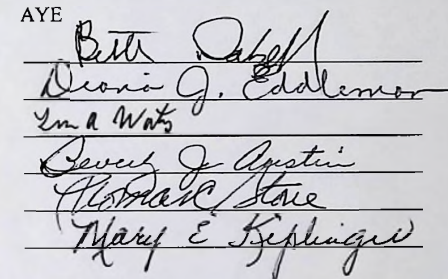 AYE
Beth
Diana J. Eddleman
A Watts
Beverly J Austin
Thomas C Stone
Mary E Keplinger